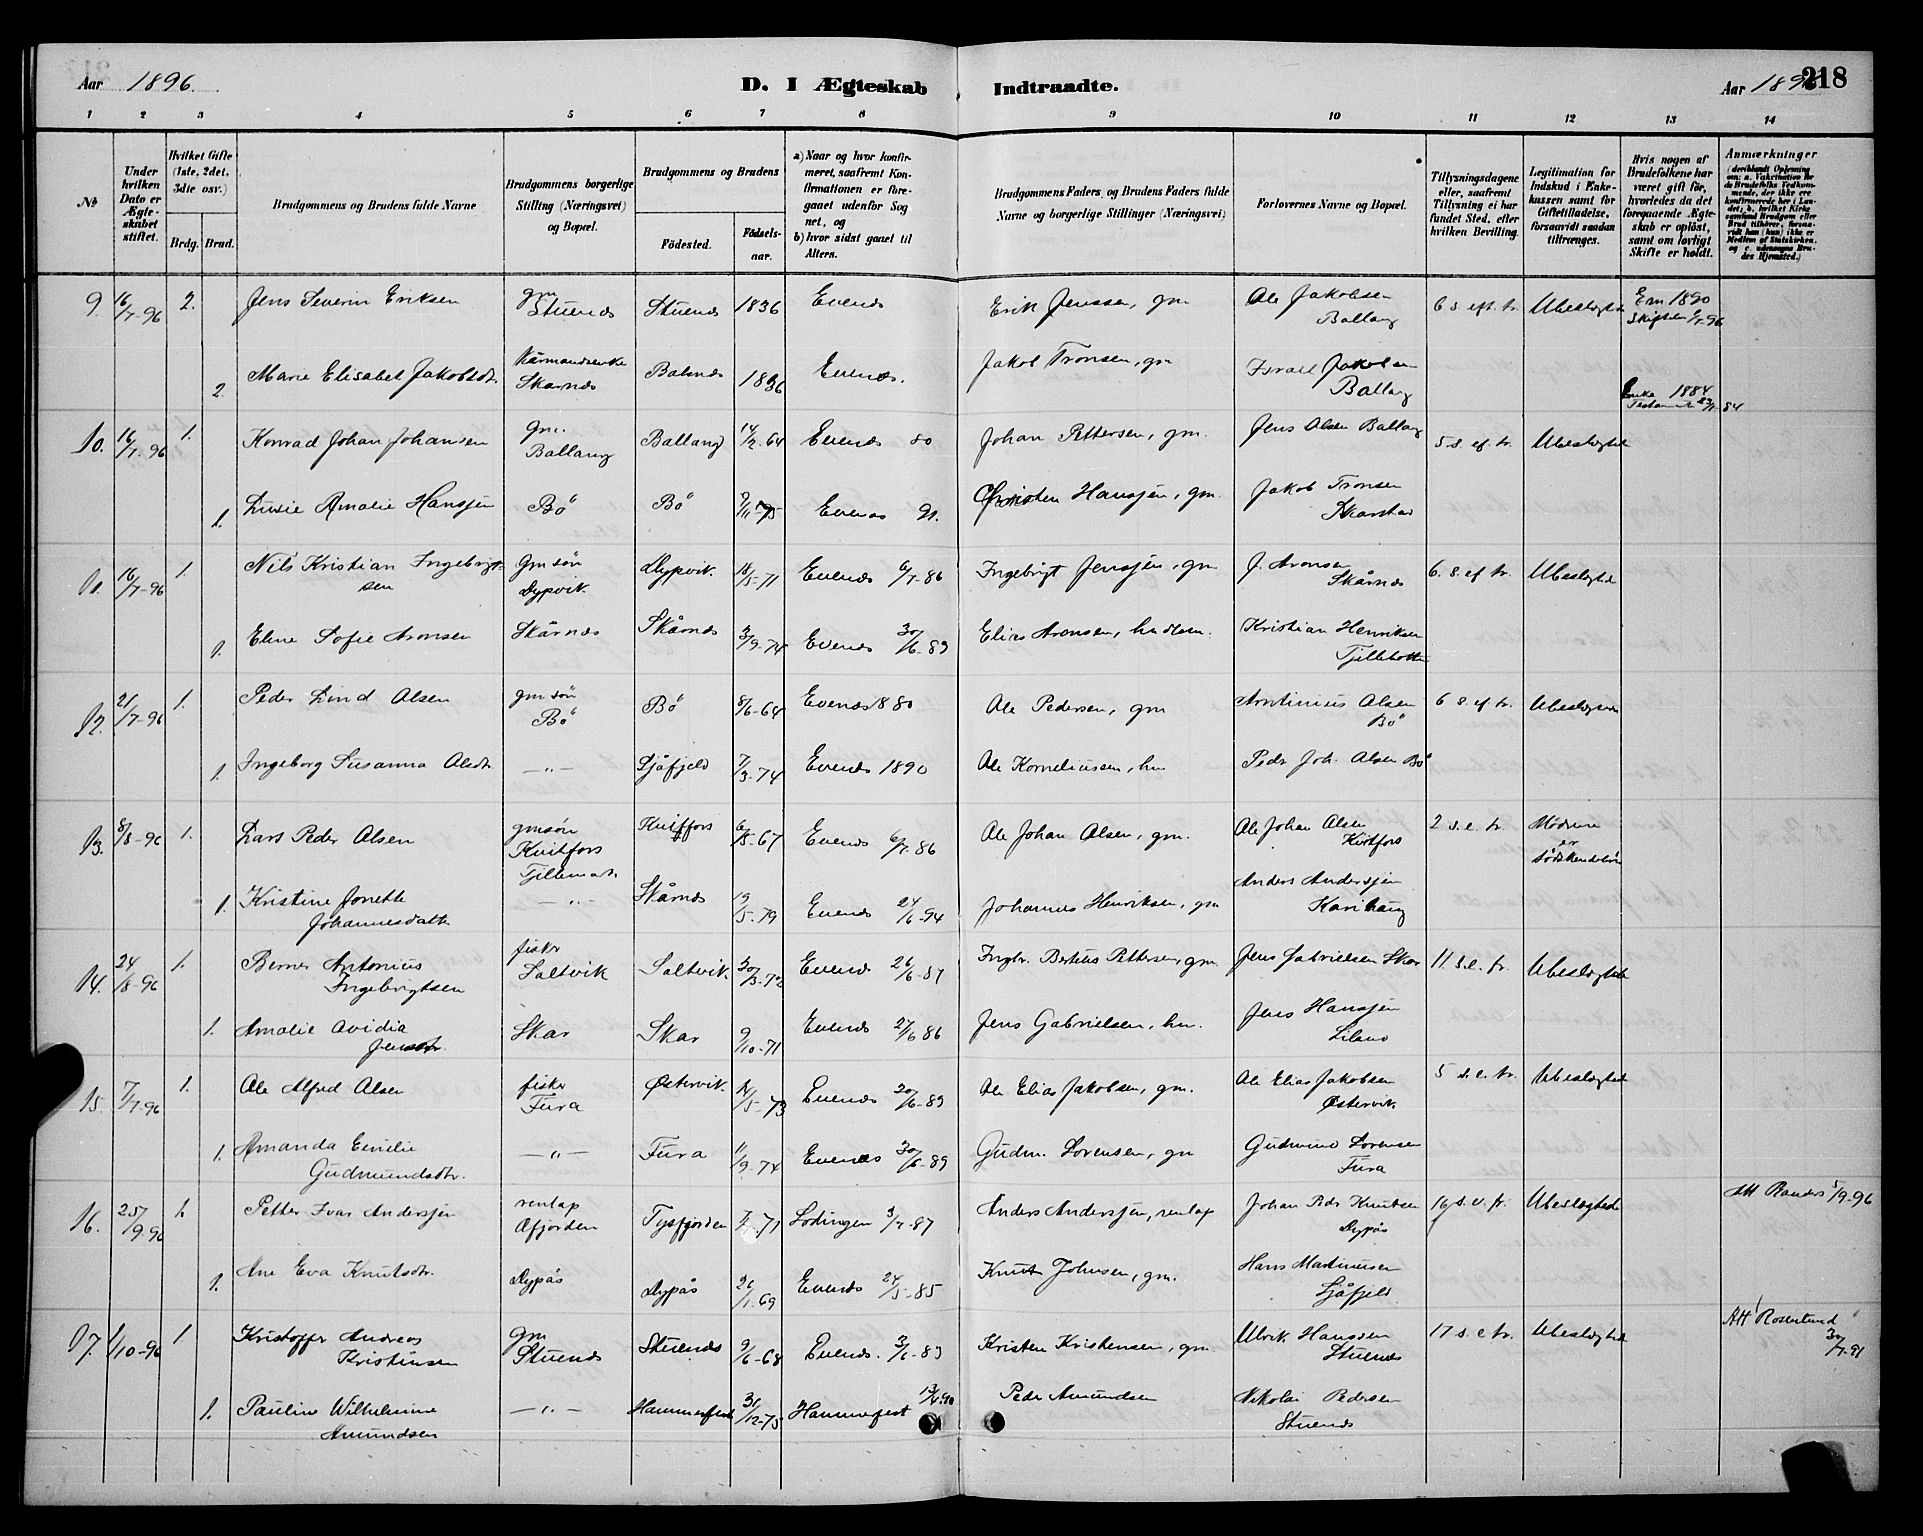 Aar 1896.
D. I Ægteskab
Indtraadte.
Aar 1896
218
1 2 3 4 5 6 7 8 9 10 11 12 13 14
No
Under hvilken Dato er Ægteskabet stiftet.
Hvilket Gifte (1ste, 2det, 3die osv.)
Brdg. Brud.
Brudgommens og Brudens fulde Navne
Brudgommens borgerlige Stilling (Næringsvei) og Bopæl.
Brudgommens og Brudens
Födested.
Födsels-aar.
a) Naar og hvor konfirmeret, saafremt Konfirmationen er foregaaet udenfor Sognet, og
b) hvor sidst gaaet til Alters.
Brudgommens Faders og Brudens Faders fulde Navne og borgerlige Stillinger (Næringsvei)
Forlovernes Navne og Bopæl.
Tillysningsdagene eller, saafremt Tillysning ei har fundet Sted, efter hvilken Bevilling.
Legitimation for Indskud i Enkekassen samt for Giftetilladelse, forsaavidt saadan tiltrænges.
Hvis nogen af Brudefolkene har været gift för, hvorledes da det foregaaende Ægteskab er oplöst, samt om lovligt Skifte er holdt.
Anmærkninger
9. 16/7-96 2. Jens Severin Eriksen gm Stuenes Stuenes 1836 Evenes Erik Jenssen, gm Ole Jakobsen Ballang 6 s. eft. tr. Ubeslægtede Em 1890
2. Marie Elisabet Jakobsdr. Skarnes 1836 Evenes. Jakob Tronsen, gm Israel Jakobsen Ballang Enke 1884
10. 16/7-96 1. Konrad Johan Johansen gm. Ballang Ballang 14/2-64 Evenes 80 Johan Pettersen, gm. Jens Olsen Ballang 5 s. ef. tr. Ubeslægtede
1. Lusie Amalie Hanssen Bö Bö 9/11-75 Evenes 91. Christen Hanssen, gm. Jakob Tronsen Skarstad
11. 16/7-96 1. Nils Kristian Ingebrigtsen gmsön Dypvik Dypvik. 18/5-71 Evenes 6/7-86 Ingebrigt Jenssen, gm J. Aronsen Skårnes 6. s. ef tr. Ubeslægtede
1. Eline Sofie Aronsen Skårnes Skårnes 3/9-74 Evenes 30/6-89 Elias Aronsen, Kristian Henriksen Tjillebotn
12. 21/7-96 1. Peder Lind Olsen gmsön Bö Bö 8/6-64 Evenes 1880 Ole Pedersen, gm Arntinius Olsen Bö 6 s. ef tr. Ubeslægtede
1. Ingeborg Susanna Olsdr. —"— Sjåfjeld 7/3-74 Evenes 1890 Ole Korneliussen, hm Peder Joh. Olsen Bö
13. 8/8-96 1. Lars Peder Olsen gmsön Kvitfors Kvitfors 6/5-67 Evenes 6/7-86 Ole Johan Olsen, gm. Ole Johan Olsen Kvitfors 2 s. e. tr. Mødrene er Södskendebörn
1. Kristine Jonette Johannesdatter —"— Skårnes 19/5-79 Evenes 24/6-94 Johannes Henriksen, gm Anders Andersen Karihaug
14. 24/8-96 1. Berner Antonius Ingebrigtsen fisker Saltvik Saltvik 30/3-72 Evenes 26/6-87 Ingbr. Berteus Pettersen, gm. Jens Gabrielsen Skar 11. s. e. tr. Ubeslægtede
1. Amalie Ovidia Jensdr. Skar Skar 9/10-71 Evenes 27/6 86 Jens Gabrielsen, hm. Jens Hanssen Liland
15. 7/7-96 1. Ole Alfred Olsen fisker Fura Østervik. 5-73 Evenes 30/6-89 Ole Elias Jakobsen, gm. Ole Elias Jakobsen Østervik 5 s. e. tr. Ubeslægtede
1. Amanda Emilie Gudmundsdtr. —"— Fura 11/9-74 Evenes 30/6-89 Gudm. Sorensen, gm Gudmund Sorensen Fura
16. 25/9-96 1. Petter Ivar Andersen renlap Tysfjorden 71 Lodingen 3/7-87 Anders Andersen, renlap Johan Pedr Knutsen Dypås 16 s. e. tr. Ubeslægtede Att Randers 5/9-96
1. Ane Eva Knutsdtr. Dypås Dypås 26/1-69 Evenes 24/5-85 Knut Johnsen, gm. Hans Martinusen Sjåfjeld
17. 1/10-96 1 Kristoffer Andreas Kristensen gm Stuenes Stuenes 9/6-68 Evenes. 3/6-83 Kristen Kristensen, gm Ulrik Hanssen Stuenes 17 s. e tr. Ubeslægtede Att Rosenlund 30/7-91
1. Pauline Wilhelmine Amundsen —"— Hammerfest 31/12-75 Hammerfest 13/4-90 Peder Amundsen Nikolai Pedersen Stuenes